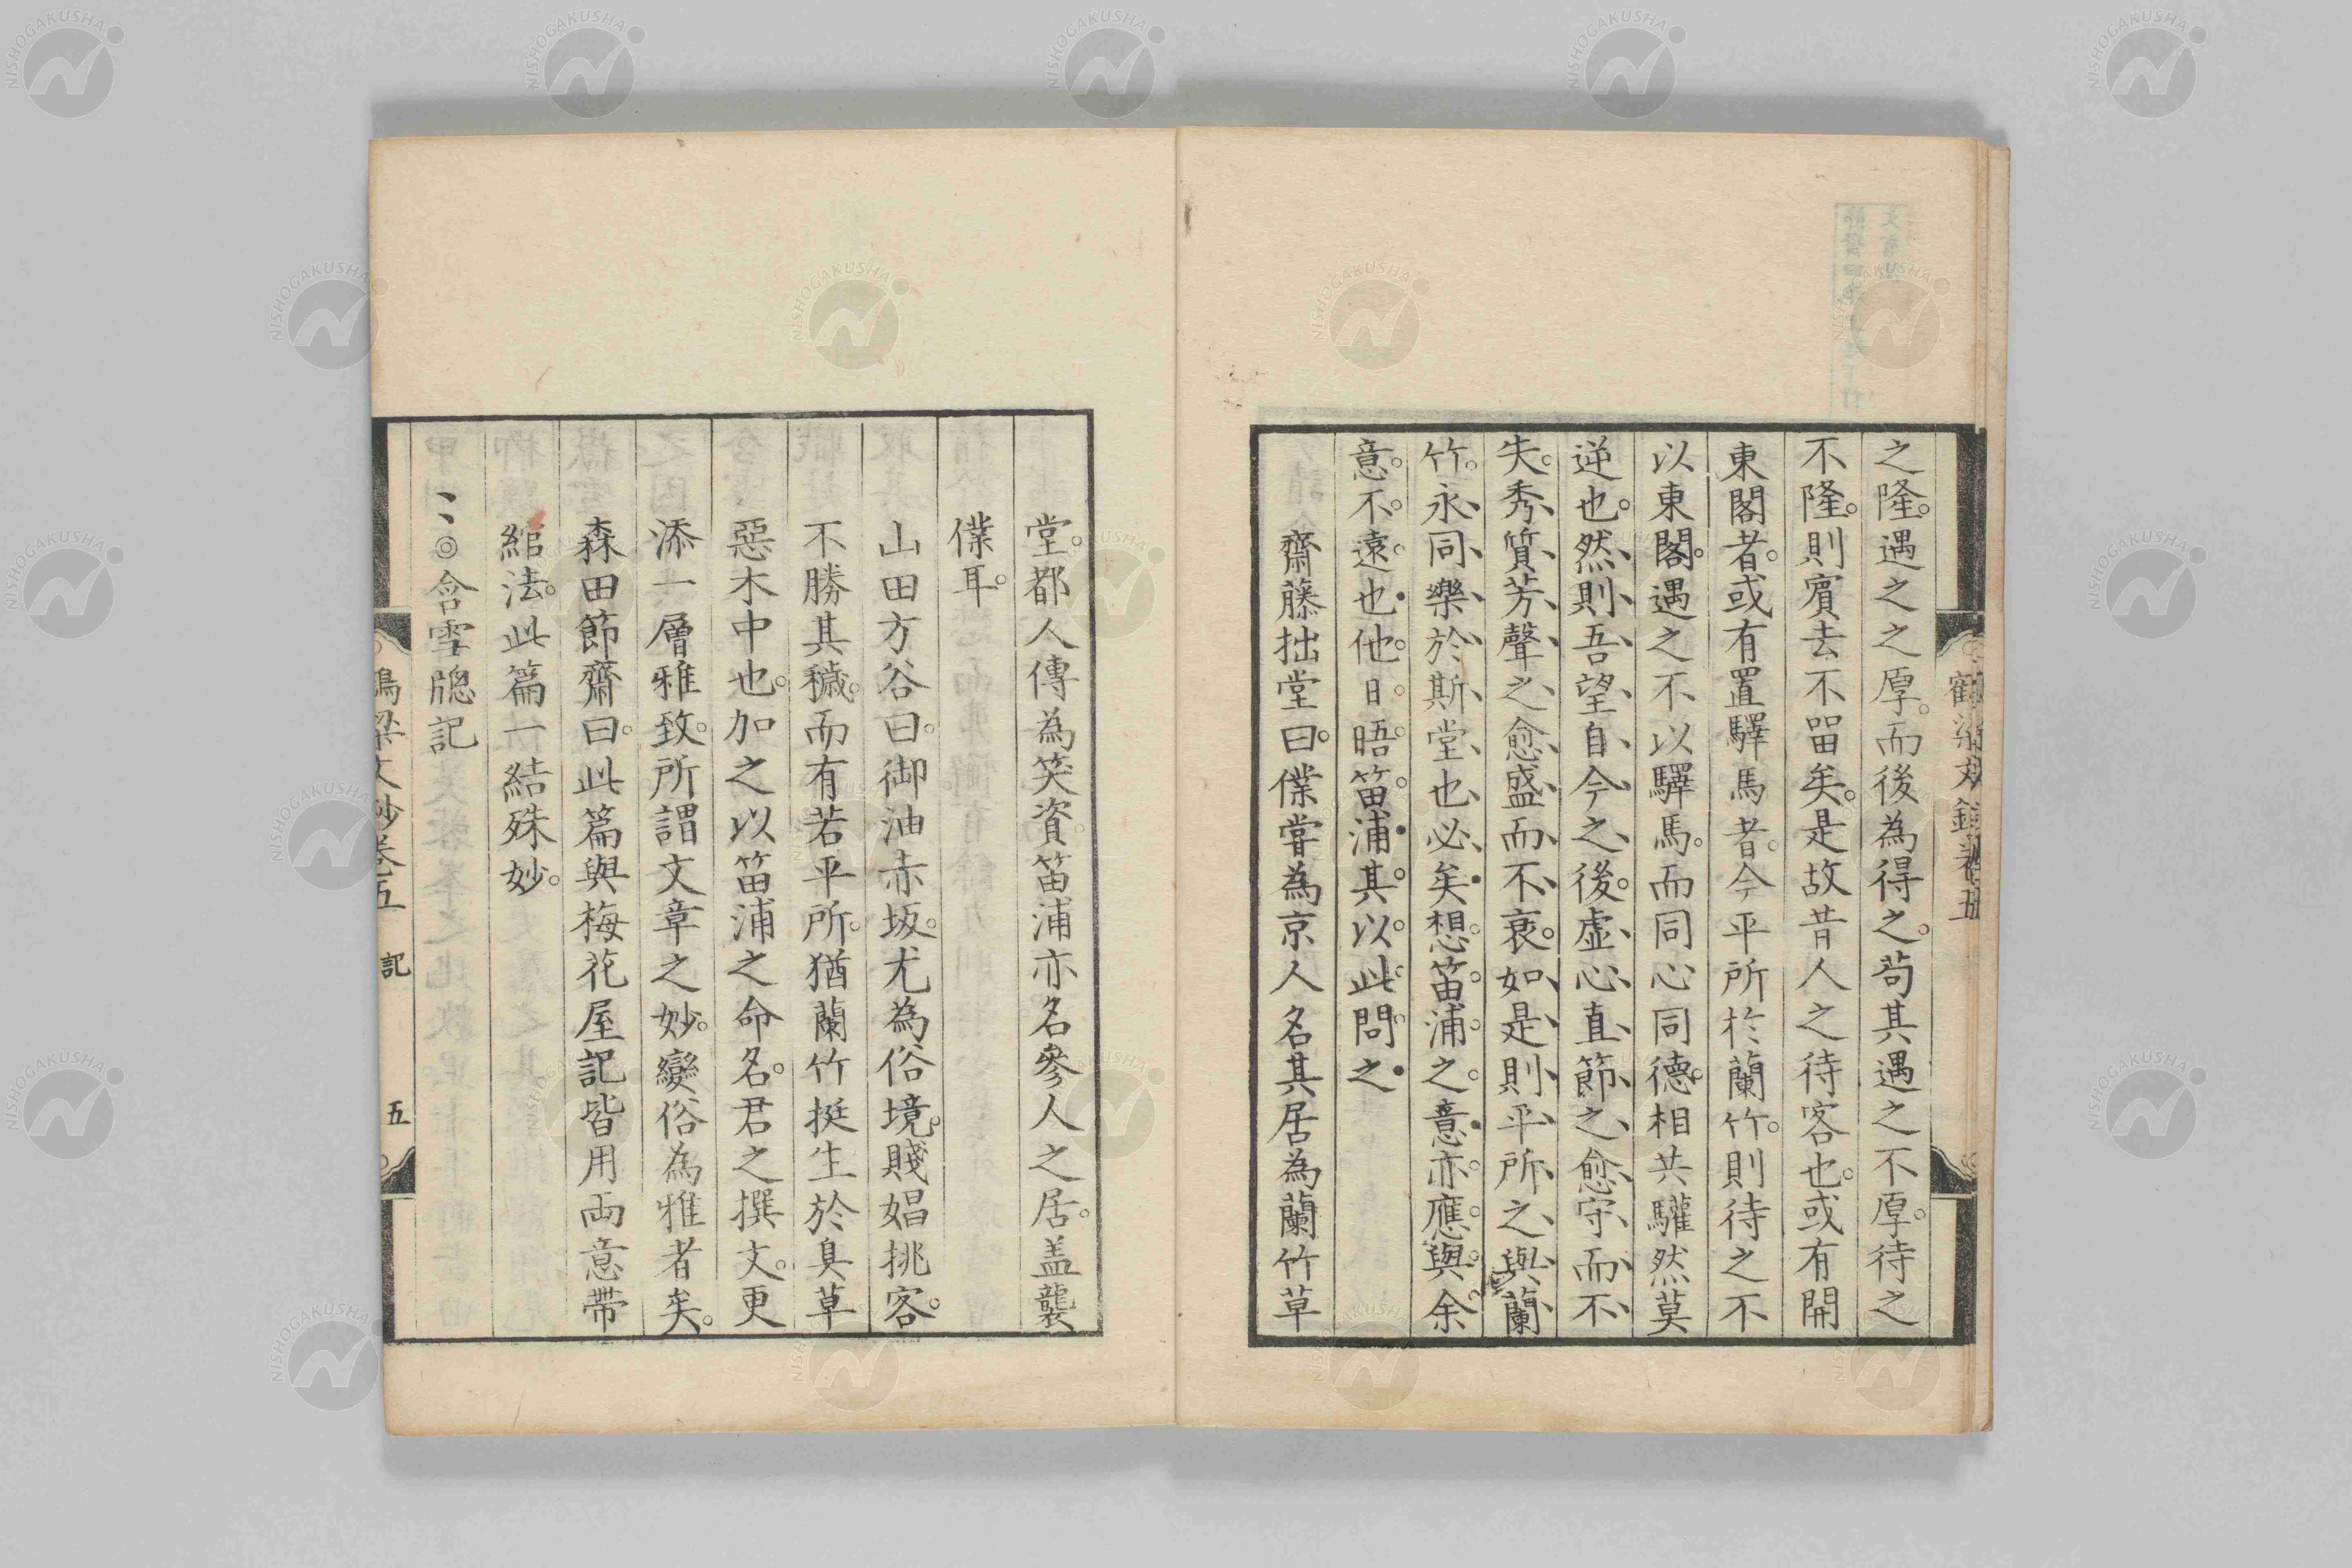 之隆。遇之之厚。而後為得之。茍其遇之不厚。待之
不隆。則賓去不畱矣。是故昔人之待客也。或有開
東閣者。或有置驛馬者。今平所於蘭竹。則待之不
以東閣。遇之不以驛馬。而同心同德。相共驩然莫
逆也。然則吾望自今之後。虛心直節之愈守而不
失。秀質芳聲之愈盛而不衰。如是則平所之與蘭
竹。永同樂於斯堂也必矣。想笛浦之意。亦應與余
意不遠也。他日晤笛浦。其以此問之。
齋藤拙堂曰。僕甞為京人名其居為蘭竹草
堂。都人傳為笑資。笛浦亦名參人之居。盖襲
僕耳。
山田方谷曰。御油赤坂。尤為俗境。賤娼挑客。
不勝其穢。而有若平所。猶蘭竹挺生於臭草
惡木中也。加之以笛浦之命名。君之撰文。更
添一層雅致。所謂文章之妙。變俗為雅者矣。
森田節齋曰。此篇與梅花屋記皆用両意帶
綰法。此篇一結殊妙。
、、◎含雪牎記
鶴梁文鈔卷五 記 五
NISHOGAKUSHA